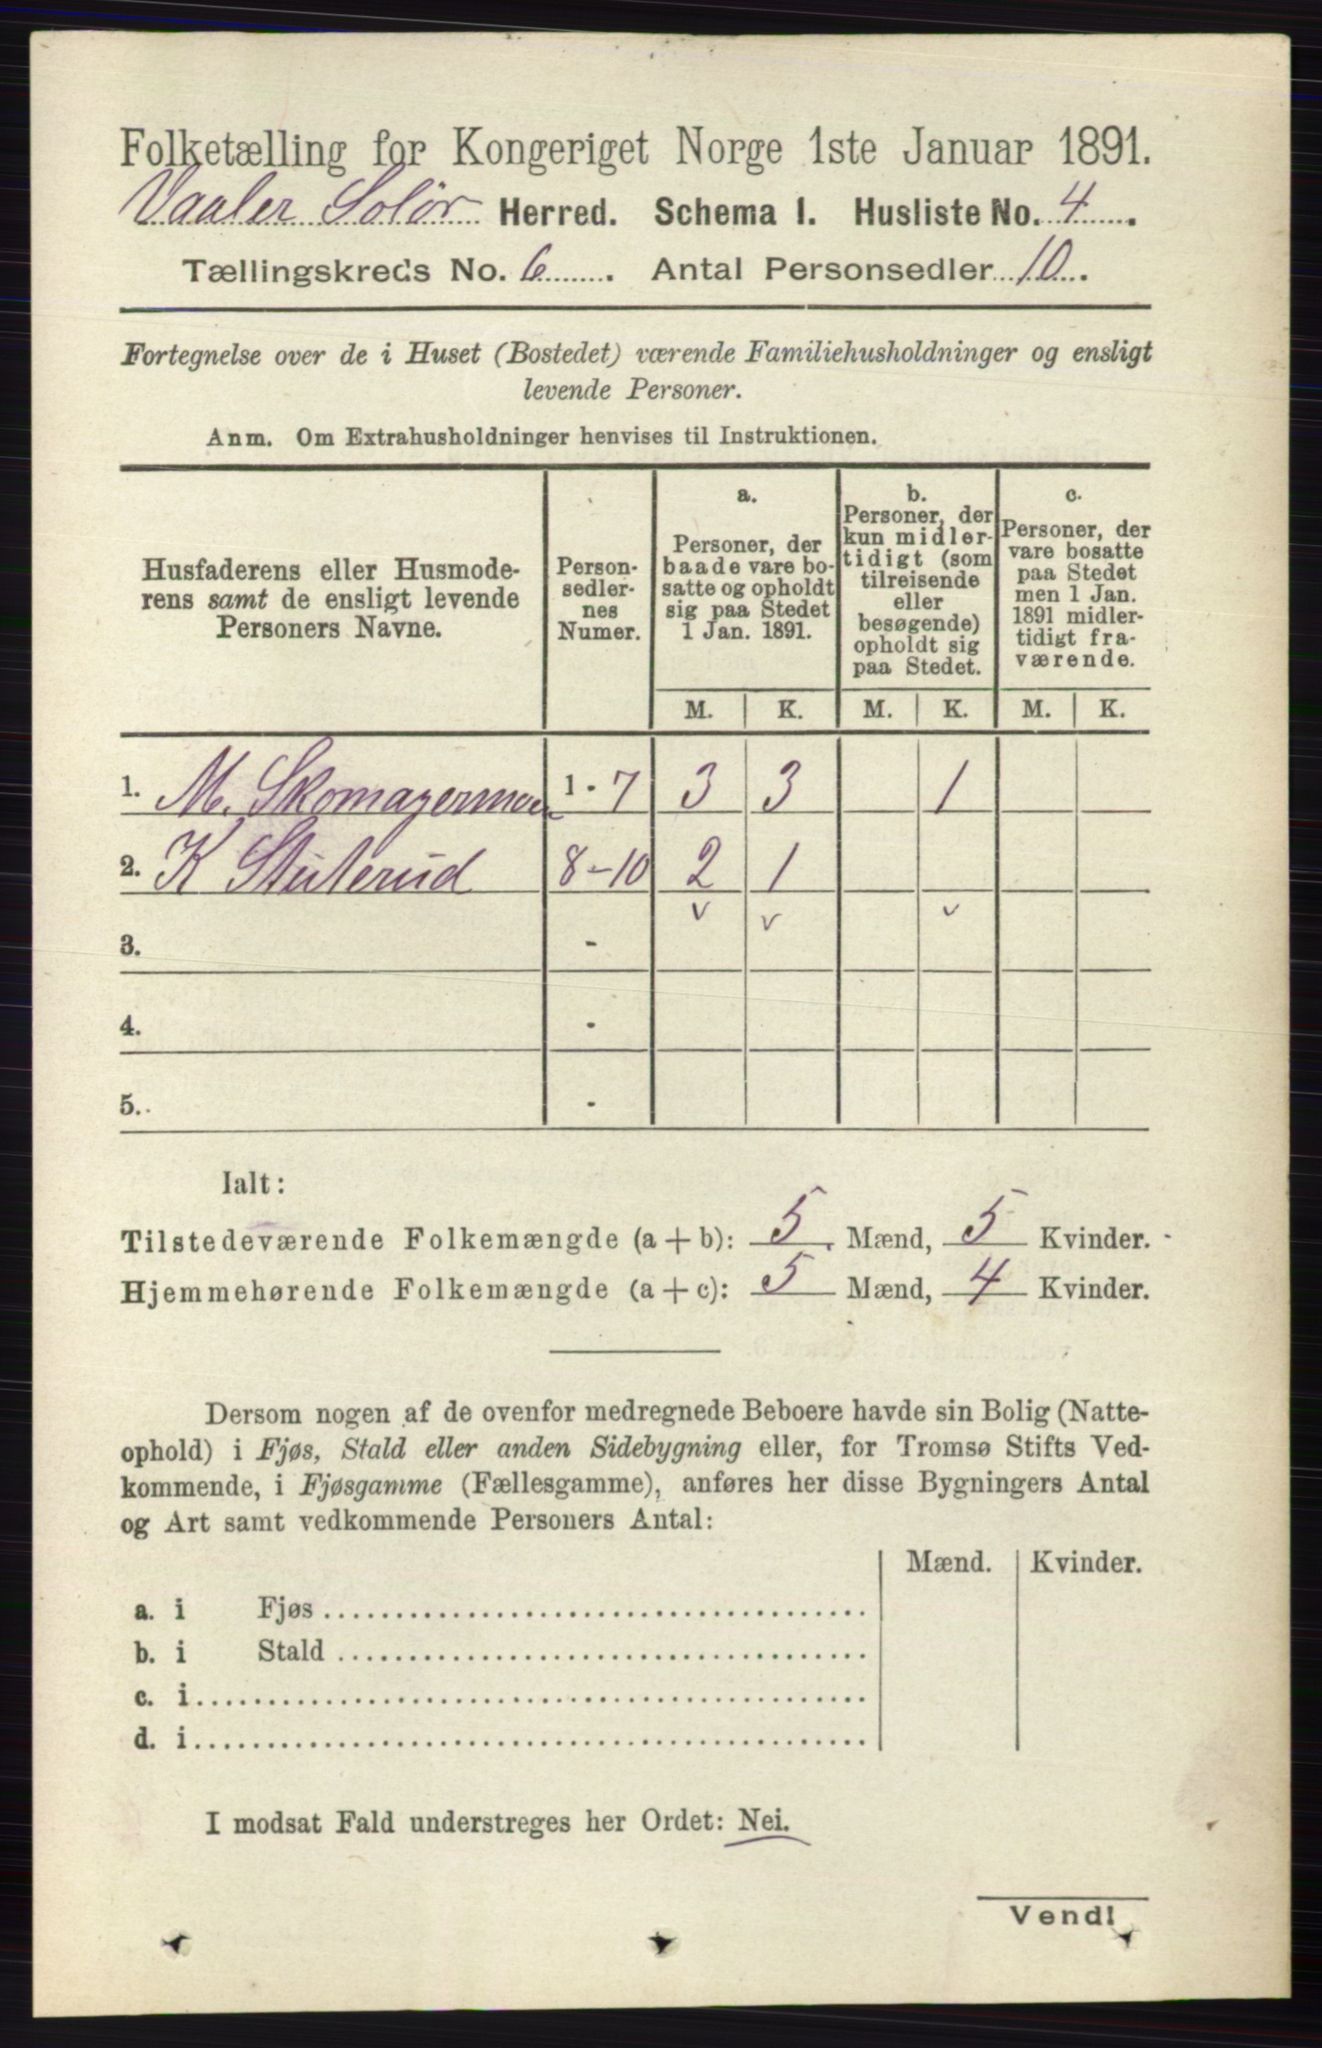 Folketælling for Kongeriget Norge 1ste Januar 1891.
Vaaler Solør Herred. Schema I. Husliste No. 4.
Tællingskreds No. 6. Antal Personsedler 10.
Fortegnelse over de i Huset (Bostedet) værende Familiehusholdninger og ensligt
levende Personer.
Anm. Om Extrahusholdninger henvises til Instruktionen.
Husfaderens eller Husmode-
rens samt de ensligt levende
Personers Navne.
Person-
sedler-
nes
Numer.
a.
Personer, der
baade vare bo-
satte og opholdt
sig paa Stedet
1 Jan. 1891.
b.
Personer, der
kun midler-
tidigt (som
tilreisende
eller
besøgende)
opholdt sig
paa Stedet.
c.
Personer, der
vare bosatte
paa Stedet
men 1 Jan.
1891 midler-
tidigt fra-
værende.
M. K. M. K. M. K.
1. M. Skomagermoen 1 - 7 3 3 1
2. K Stuterud 8-10 2 1
v v v
3. -
4. -
5. -
Ialt:
Tilstedeværende Folkemængde (a+b): 5 Mænd, 5 Kvinder.
Hjemmehørende Folkemængde (a+c): 5 Mænd, 4 Kvinder.
Dersom nogen af de ovenfor medregnede Beboere havde sin Bolig (Natte-
ophold) i Fjøs, Stald eller anden Sidebygning eller, for Tromsø Stifts Ved-
kommende, i Fjøsgamme (Fællesgamme), anføres her disse Bygningers Antal
og Art samt vedkommende Personers Antal:
Mænd. Kvinder.
a. i Fjøs
b. i Stald
c. i
d. i
I modsat Fald understreges her Ordet: Nei.
Vend!